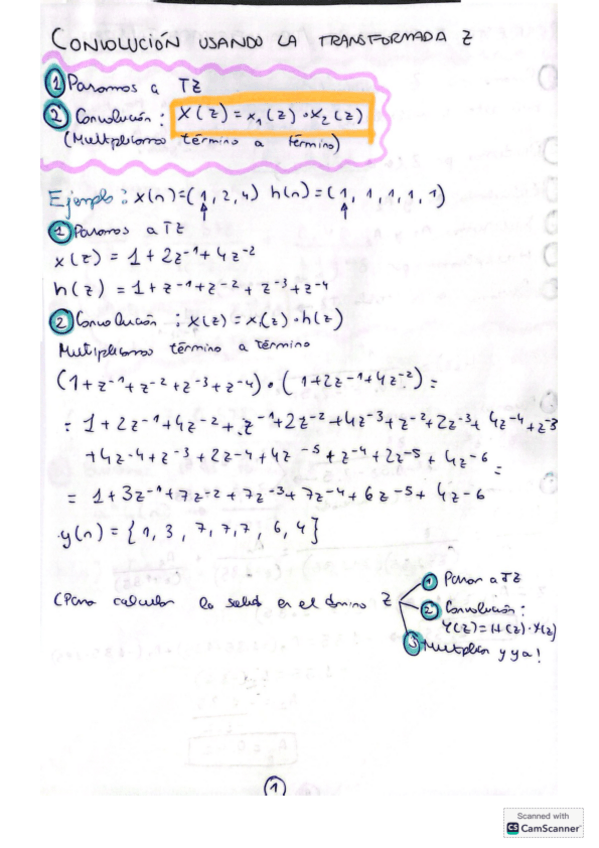 CONVOLUCIÓN USANDO LA TRANSFORMADA Z
① Pasamos a TZ
② Convolución: X(z) = x₁(z) · x₂(z)
(Multiplicamos término a término)
Ejemplo: x(n)=(1, 2, 4) h(n)=(1, 1, 1, 1, 1)
① Pasamos a TZ
x(z) = 1 + 2z⁻¹ + 4z⁻²
h(z) = 1 + z⁻¹ + z⁻² + z⁻³ + z⁻⁴
② Convolución : x(z) = x(z) · h(z)
Multiplicamos término a término
(1 + z⁻¹ + z⁻² + z⁻³ + z⁻⁴) · (1 + 2z⁻¹ + 4z⁻²) =
= 1 + 2z⁻¹ + 4z⁻² + z⁻¹ + 2z⁻² + 4z⁻³ + z⁻² + 2z⁻³ + 4z⁻⁴ + z⁻³
+ 4z⁻⁴ + z⁻³ + 2z⁻⁴ + 4z⁻⁵ + z⁻⁴ + 2z⁻⁵ + 4z⁻⁶ =
= 1 + 3z⁻¹ + 7z⁻² + 7z⁻³ + 7z⁻⁴ + 6z⁻⁵ + 4z⁻⁶
y(n) = {1, 3, 7, 7, 7, 6, 4}
(Para calcular la salida en el dominio Z
① Pasar a TZ
② Convolución:
Y(z) = H(z) · X(z)
③ Multiplican y ya!
①
Scanned with
CS CamScanner